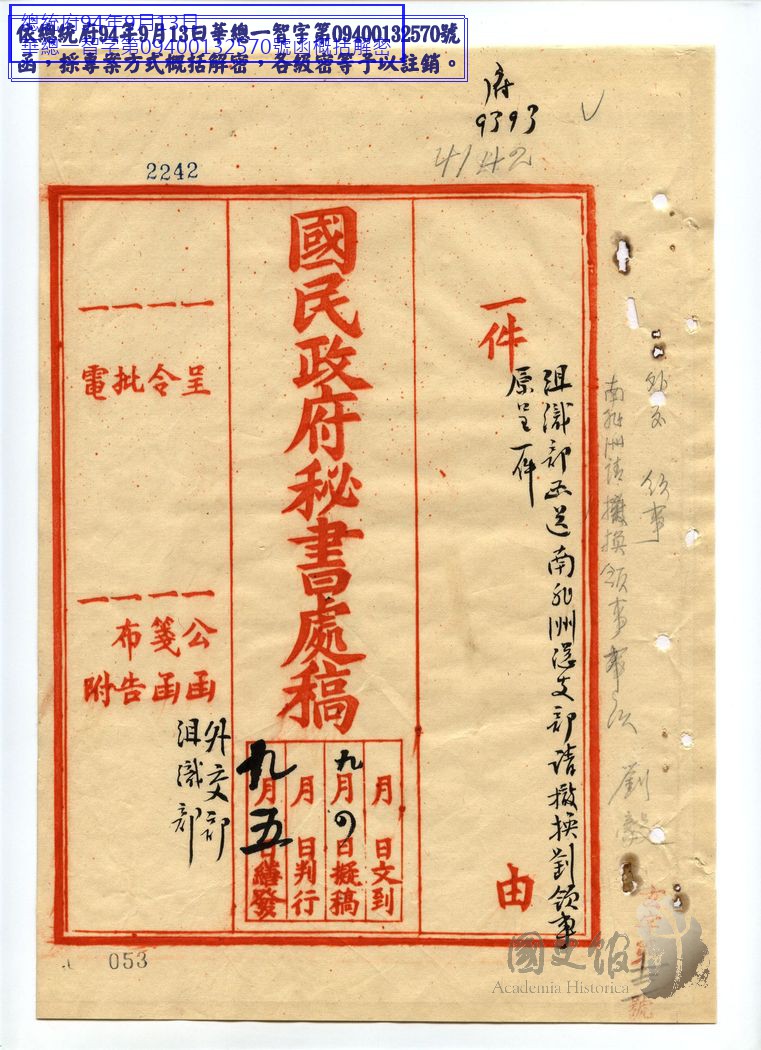 總統府94年9月13日
華總一智字第09400132570號函概括解密
依總統府94年9月13日華總一智字第09400132570號
函，採專案方式概括解密，各級密等予以註銷。
府
9393
4142
2242
外交 領事
南非洲請撤換領事事次 劉毅
一件
組織部函送南非洲總支部請撤換劉領事
原呈一件
由
國民政府秘書處稿
月 日文到
九月 日擬稿
月 日判行
九月五日繕發
一呈
一令
一批
一電
一公函
一箋函
一布告
一附
外交部
組織部
053
國史館
Academia Historica
字第 號